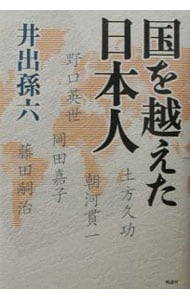 国を越えた
日本人
井出孫六
野口英世
岡田嘉子
藤田嗣治
土方久功
朝河貫一